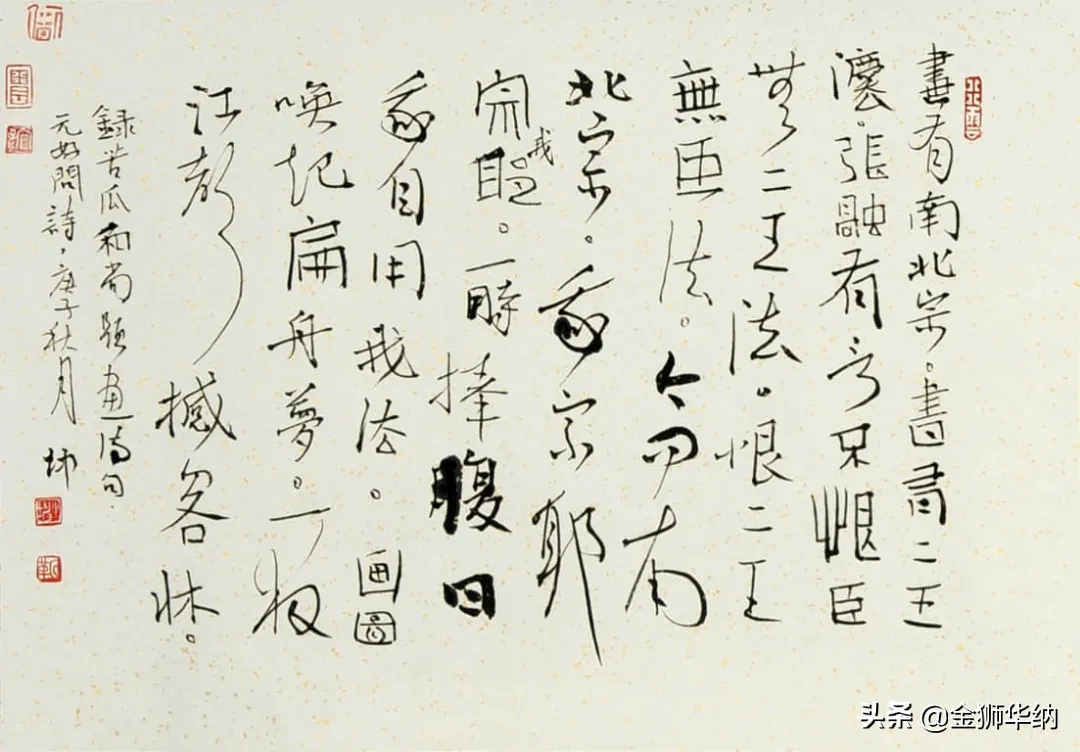 畫有南北宗。書有二王
灋。張融有言不恨臣
無二王法。恨二王
無臣法。今问南
北宗。我宗耶
宗我耶。一時捧腹曰
我自用我法。画圖
唤起扁舟夢。一夜
江聲撼客牀。
録苦瓜和尚題畫句
元好問詩，庚子秋月 坤
头条 @金狮华纳